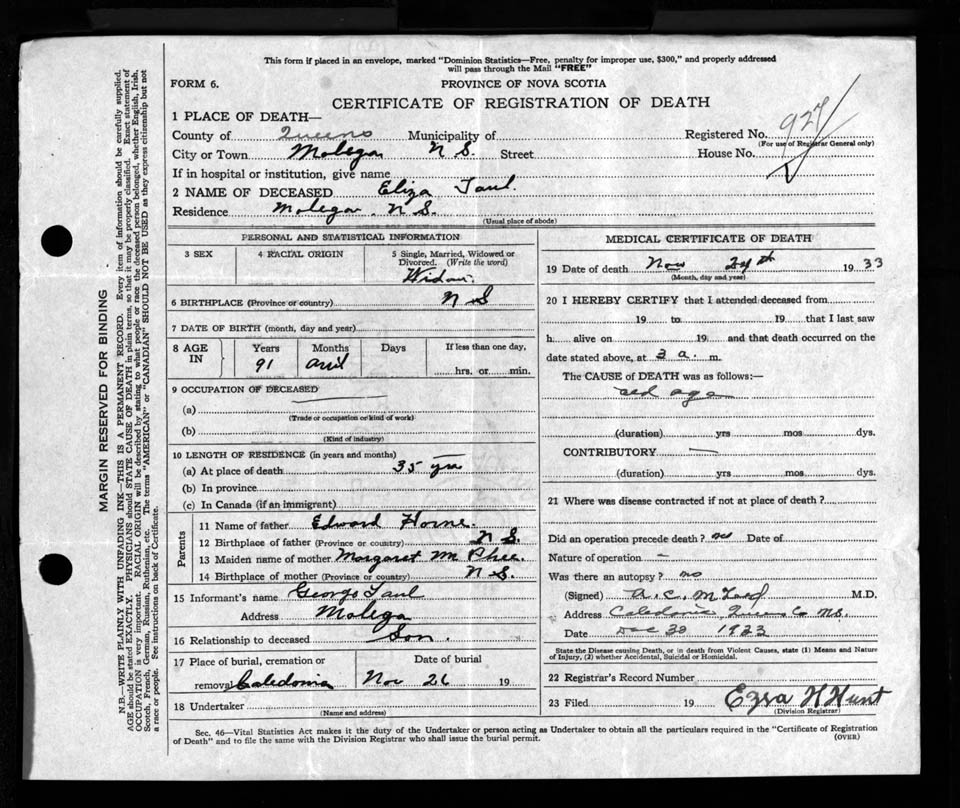 This form if placed in an envelope, marked "Dominion Statistics—Free, penalty for improper use, $300," and properly addressed
will pass through the Mail "FREE"
FORM 6.
PROVINCE OF NOVA SCOTIA
CERTIFICATE OF REGISTRATION OF DEATH
1 PLACE OF DEATH—
County of Queens Municipality of Registered No. 927
(For use of Registrar General only)
City or Town Molega N S. Street House No.
If in hospital or institution, give name
2 NAME OF DECEASED Eliza
Residence Molega. N S.
(Usual place of abode)
PERSONAL AND STATISTICAL INFORMATION
3 SEX 4 RACIAL ORIGIN 5 Single, Married, Widowed or
Divorced. (Write the word)
Widow.
6 BIRTHPLACE (Province or country) N S
7 DATE OF BIRTH (month, day and year)
8 AGE IN Years Months Days If less than one day,
91 hrs. or min.
9 OCCUPATION OF DECEASED
(a)
(Trade or occupation or kind of work)
(b)
(Kind of industry)
10 LENGTH OF RESIDENCE (in years and months)
(a) At place of death 35 yrs
(b) In province
(c) In Canada (if an immigrant)
Parents
11 Name of father Edward Horne.
12 Birthplace of father (Province or country) N S.
13 Maiden name of mother Margaret McPhee.
14 Birthplace of mother (Province or country) N S.
15 Informant's name George
Address Molega
16 Relationship to deceased Son.
17 Place of burial, cremation or Date of burial
removal Caledonia Nov 26 19
18 Undertaker
(Name and address)
MEDICAL CERTIFICATE OF DEATH
19 Date of death Nov 24th 1933
(Month, day and year)
20 I HEREBY CERTIFY that I attended deceased from
19 to 19 that I last saw
h alive on 19 and that death occurred on the
date stated above, at 3 a. m.
The CAUSE OF DEATH was as follows:—
old age
(duration) yrs mos dys.
CONTRIBUTORY —
(duration) yrs mos dys.
21 Where was disease contracted if not at place of death?
Did an operation precede death? no Date of
Nature of operation —
Was there an autopsy? no
(Signed) M.D.
Address Caledonia, Queens Co N.S.
Date Dec 30 1933
State the Disease causing Death, or in death from Violent Causes, state (1) Means and Nature
of Injury, (2) whether Accidental, Suicidal or Homicidal.
22 Registrar's Record Number
23 Filed 19 Ezra H Hunt
(Division Registrar)
Sec. 46—Vital Statistics Act makes it the duty of the Undertaker or person acting as Undertaker to obtain all the particulars required in the "Certificate of Registration
of Death" and to file the same with the Division Registrar who shall issue the burial permit.
(OVER)
MARGIN RESERVED FOR BINDING
N.B.—WRITE PLAINLY WITH UNFADING INK—THIS IS A PERMANENT RECORD. Every item of information should be carefully supplied.
AGE should be stated EXACTLY. PHYSICIANS should STATE CAUSE OF DEATH in plain terms, so that it may be properly classified. Exact statement of
OCCUPATION is very important. RACIAL ORIGIN will be described by stating to what people or race the deceased person belonged, whether English, Irish,
Scotch, French, German, Russian, Ruthenian, etc. The terms "AMERICAN" or "CANADIAN" SHOULD NOT BE USED as they express citizenship but not
a race or people. See instructions on back of Certificate.